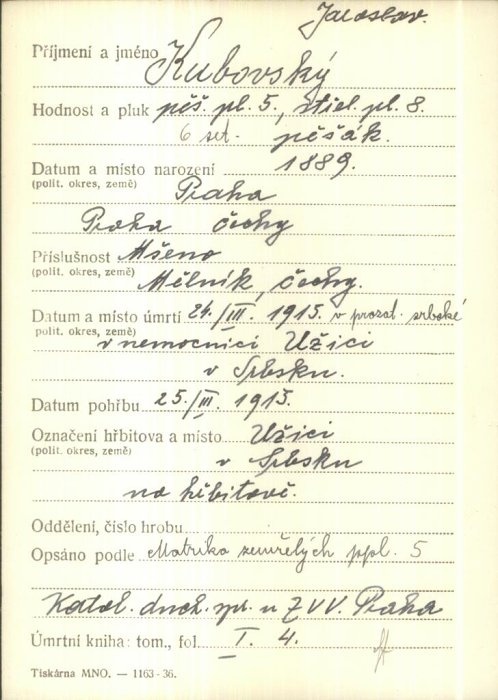 Jaroslav.
Příjmení a jméno Kubovský
Hodnost a pluk pěš. pl. 5., střel. pl. 8.
6 set. pěšák.
Datum a místo narození 1889.
(polit. okres, země) Praha
Praha čechy
Příslušnost Mšeno
(polit. okres, země) Mělník, čechy.
Datum a místo úmrtí 24./III. 1915. v prozat. srbské
polit. okres, země)
v nemocnici Užici
v Srbsku.
Datum pohřbu 25./III. 1915.
Označení hřbitova a místo Užici
(polit. okres, země) v Srbsku
na hřbitově.
Oddělení, číslo hrobu
Opsáno podle Matrika zemřelých ppl. 5
Katol. duch. spr. u ZVV. Praha
Úmrtní kniha: tom., fol. I. 4.
Tiskárna MNO. — 1163-36.